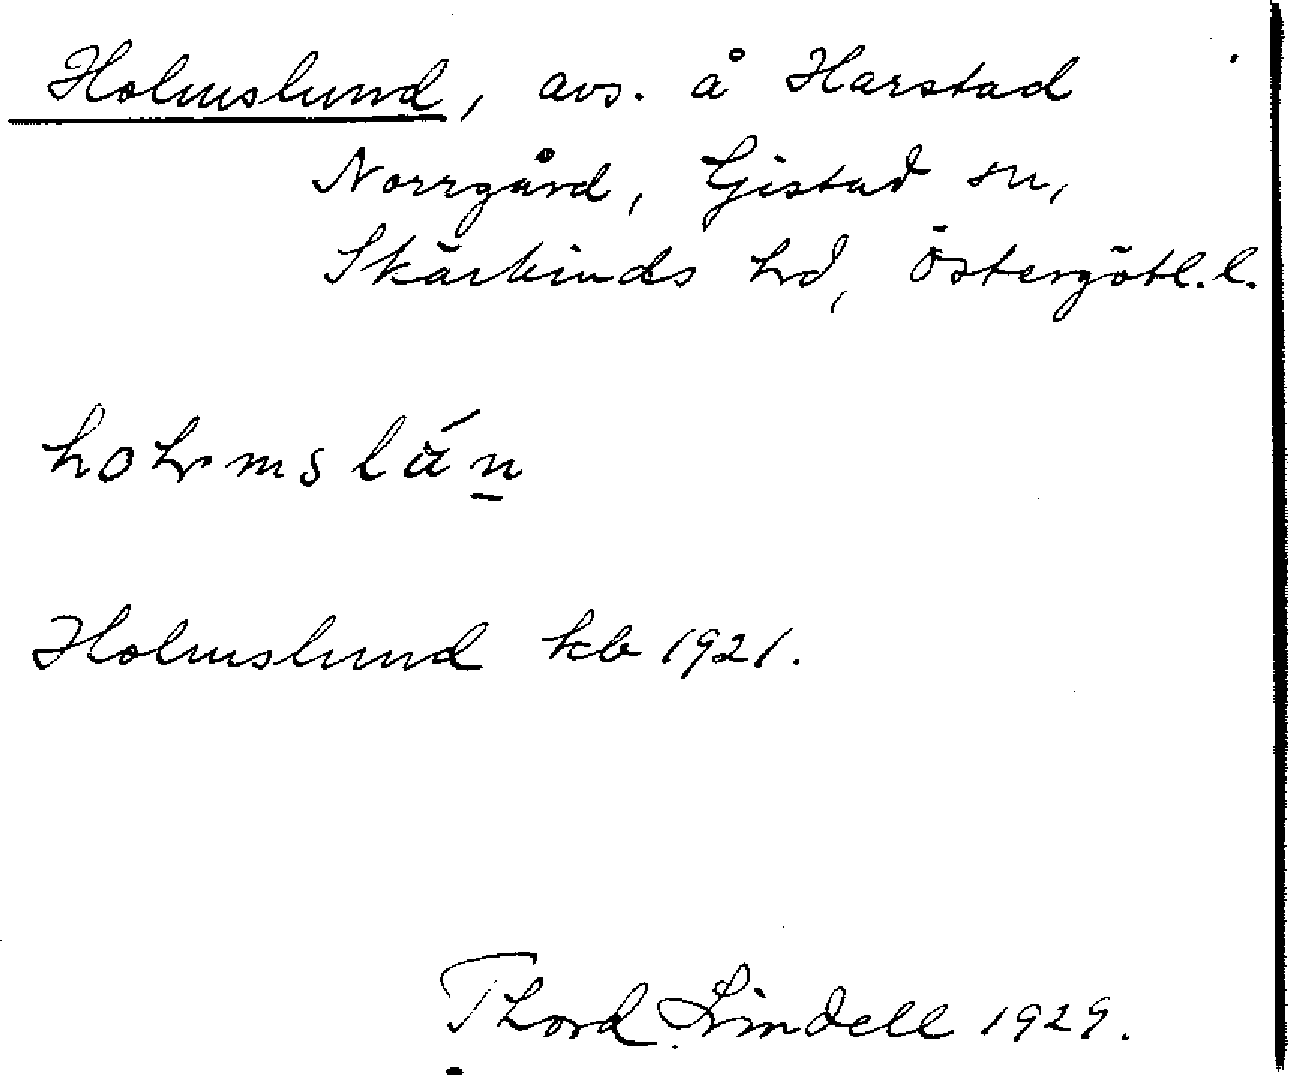 Holmslund, avs. å Harstad
Norrgård, Gistad sn,
Skärkinds hd, Östergötl. l.
Holmslund kb 1921.
Thord Lindell 1929.